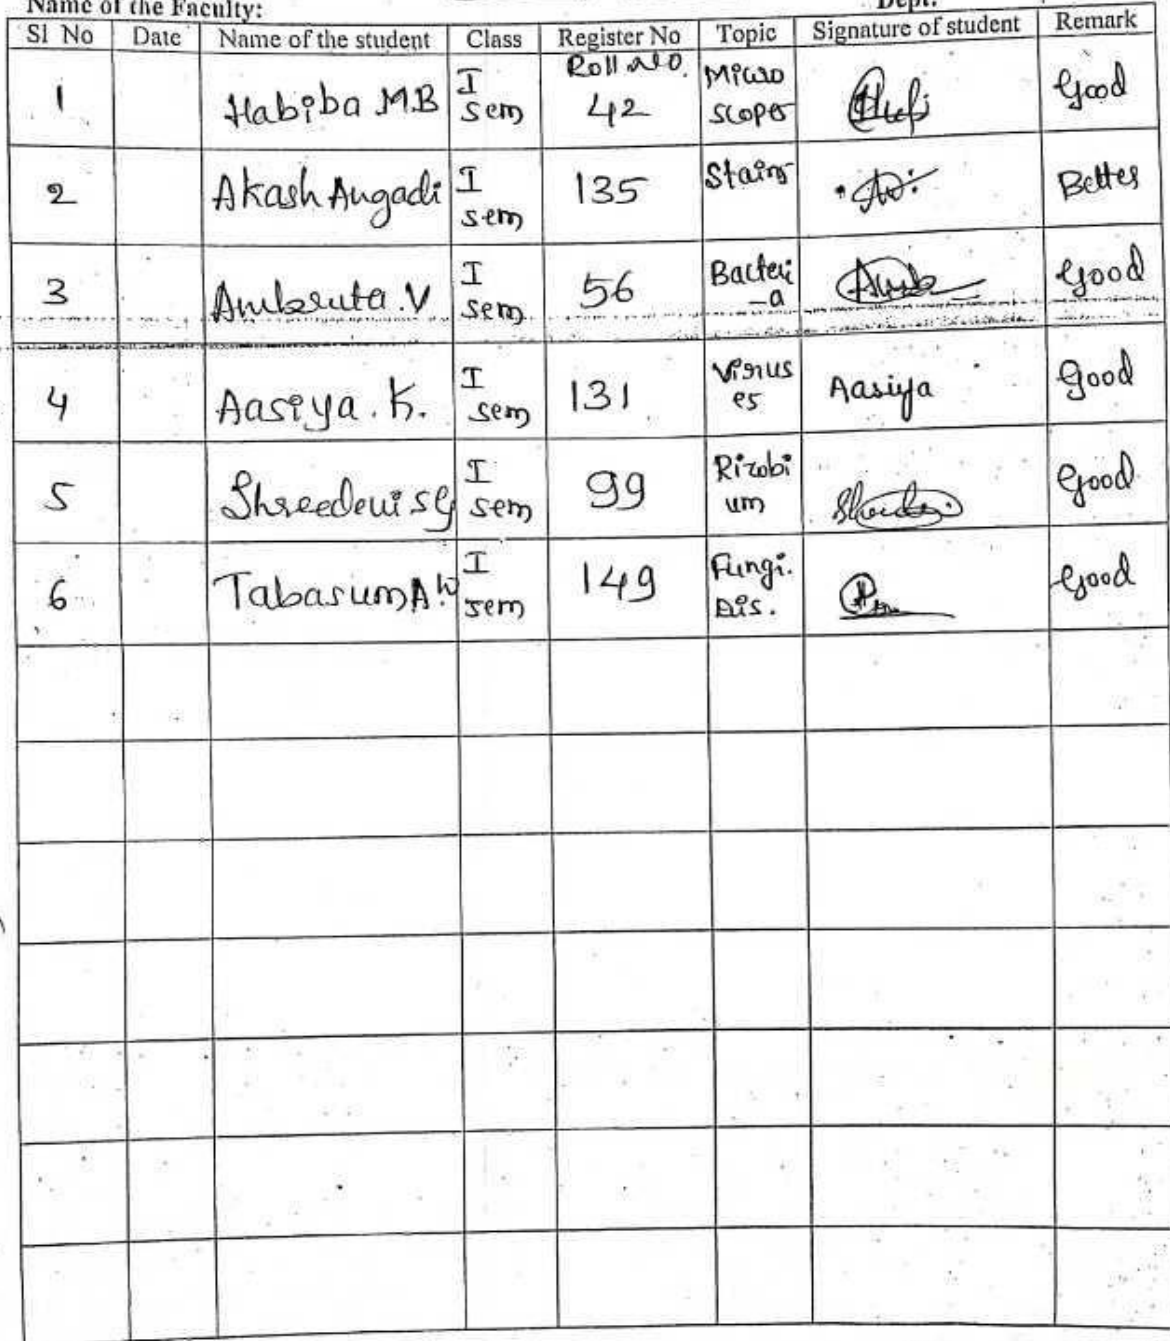 Name of the Faculty: Dept:
Sl No Date Name of the student Class Register No Topic Signature of student Remark
1 Habiba M.B I sem Roll No. 42 Micro scopes Good
2 Akash Angadi I sem 135 Stains Better
3 Ambruta.V I sem 56 Bacteri -a Good
4 Aasiya.K. I sem 131 Virus es Aasiya Good
5 Shreedevi SG I sem 99 Rizobi um Good
6 Tabasum A.W I sem 149 Fungi. Dis. Good